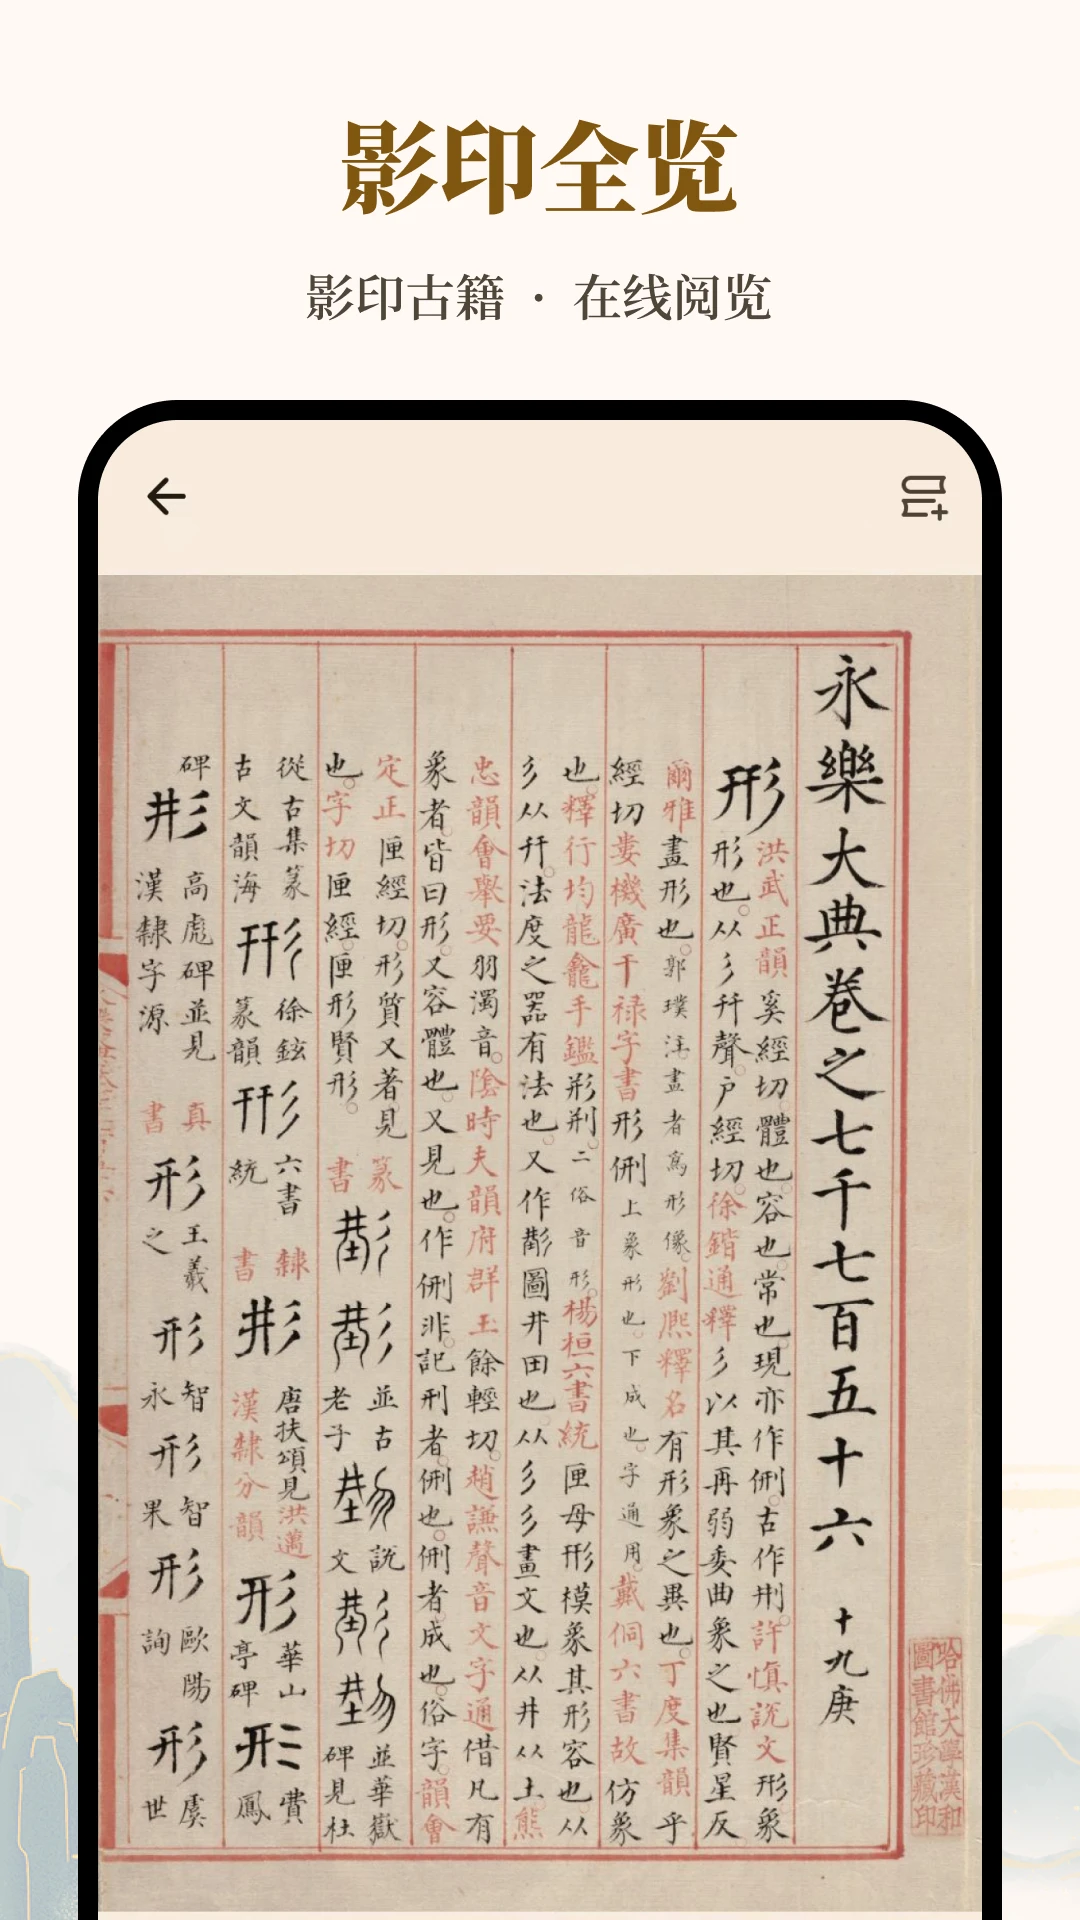 影印全览
影印古籍 · 在线阅览
永樂大典卷之七千七百五十六 十九庚
形
洪武正韻奚經切體也容也常也現亦作侀古作㓝許慎説文形象
形也从彡幵聲戶經切徐鍇通釋彡以其再弱委曲象之也賢星反
爾雅畫形也郭璞注畫者為形像劉熈釋名有形象之異也丁度集韻乎
經切婁機廣干禄字書形侀上象形也下成也字通用戴侗六書故仿象
也釋行均龍龕手鑑形㓝二俗音形楊桓六書統匣母形模象其形容也从
彡从幵法度之器有法也又作㓝圖井田也从彡彡畫文也从井从土熊
忠韻會舉要羽濁音陰時夫韻府群玉餘輕切趙謙聲音文字通借凡有
象者皆曰形又容體也又見也作侀非記刑者侀也侀者成也俗字韻會
定正匣經切形質又著見
也字切匣經匣形賢形
篆書
並古老子
説文
並華嶽碑見杜
從古集篆古文韻海
徐鉉篆韻
六書統
隸書
唐扶頌見洪邁漢隸分韻
形
華山亭碑
費鳳
碑
高彪碑並見漢隸字源
真書
形
王羲之
形
智永
形
智果
形
歐陽詢
形
虞世
哈佛大學漢和
圖書館珍藏印